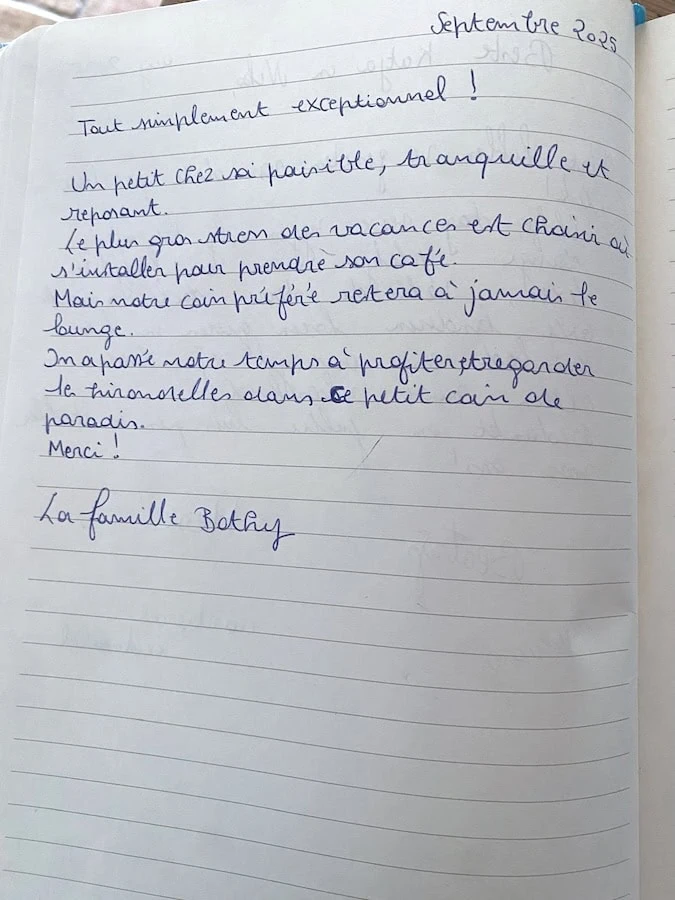 Septembre 2025
Tout simplement exceptionnel !
Un petit chez soi paisible, tranquille et
reposant.
Le plus gros stress des vacances est choisir où
s'installer pour prendre son café.
Mais notre coin préféré restera à jamais le
lounge.
On a passé notre temps à profiter et regarder
les hirondelles dans ce petit coin de
paradis.
Merci !
La famille Bothy